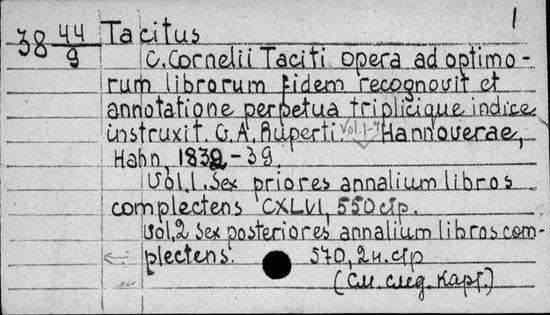 1
38 44/9 Tacitus
C. Cornelii Taciti opera ad optimo-
rum librorum fidem recognovit et
annotatione perpetua triplicique indice
instruxit G. A. Ruperti. Vol. 1-4 Hannoverae,
Hahn, 1832-39.
Vol. 1. Sex priores annalium libros
complectens CXLVI, 550 стр.
Vol. 2 Sex posteriores annalium libros com-
plectens. 570, 2 н. стр
(См. след. карт.)